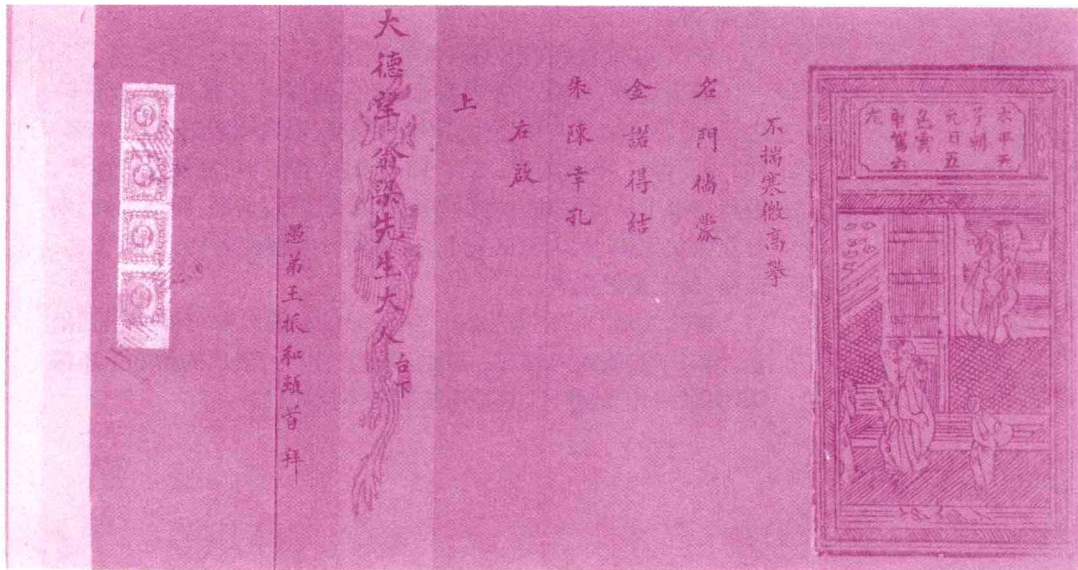 太平天
子朝
元日五
色雲
車駕六
龙
不揣寒微高攀
名門倘蒙
金諾得結
朱陳幸孔
右啟
上
大德望翁梁先生大人台下
愚弟王振和頓首拜